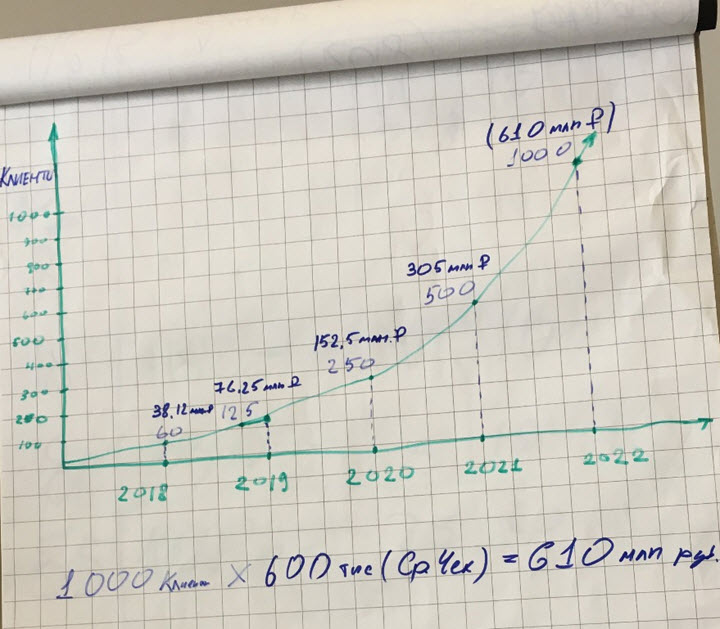 (610 млн ₽)
1000
Клиенты
1000
900
800
700
600
500
400
300
200
100
305 млн ₽
500
152,5 млн. ₽
250
76,25 млн ₽
125
38,12 млн₽
60
2018
2019
2020
2021
2022
1000 Клиент × 600 тыс (Ср Чек) = 610 млн руб.